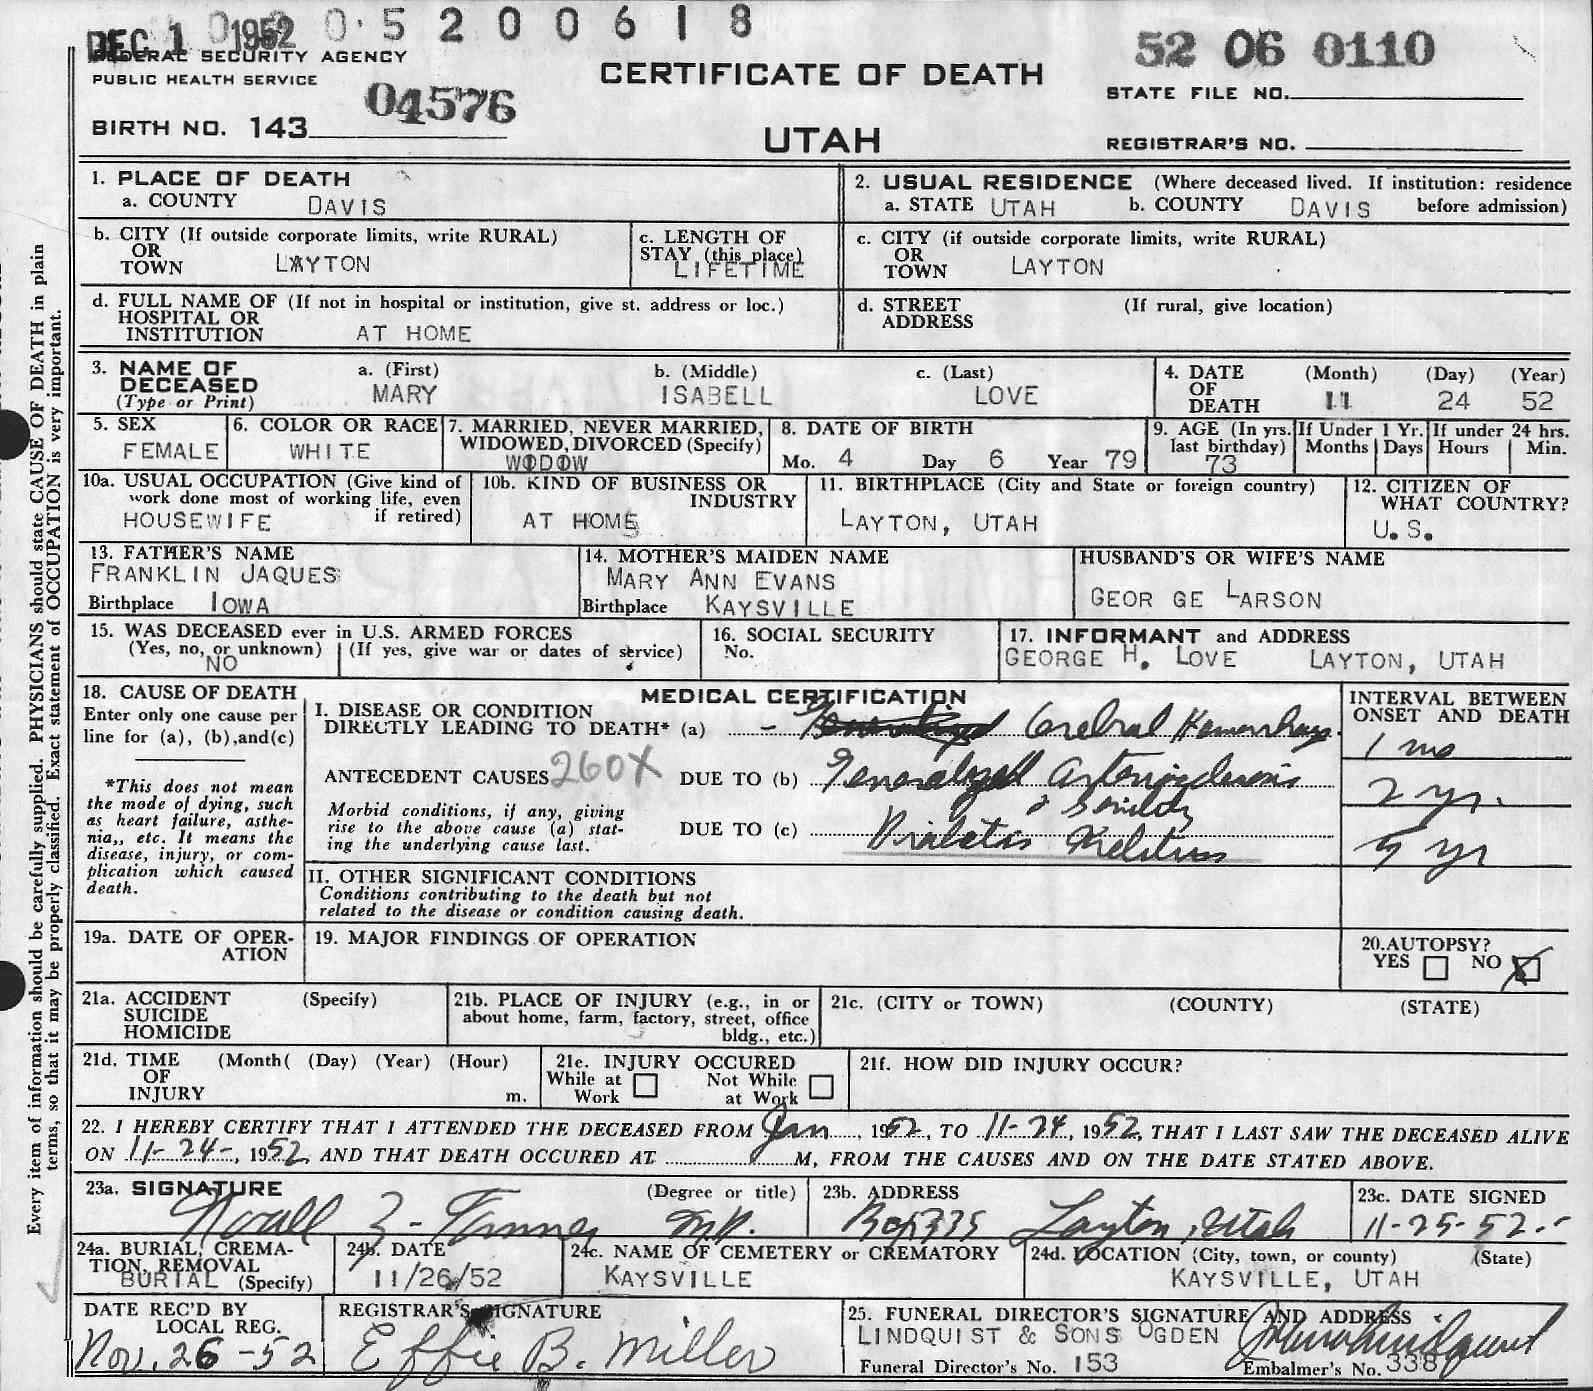 DEC 1 0 1952 0 5 2 0 0 6 1 8
FEDERAL SECURITY AGENCY
PUBLIC HEALTH SERVICE
CERTIFICATE OF DEATH
52 06 0110
STATE FILE NO.
04576
BIRTH NO. 143
UTAH
REGISTRAR'S NO.
Every item of information should be carefully supplied. PHYSICIANS should state CAUSE OF DEATH in plain
terms, so that it may be properly classified. Exact statement of OCCUPATION is very important.
1. PLACE OF DEATH
a. COUNTY DAVIS
2. USUAL RESIDENCE (Where deceased lived. If institution: residence
a. STATE UTAH b. COUNTY DAVIS before admission)
b. CITY (If outside corporate limits, write RURAL)
OR
TOWN LAYTON
c. LENGTH OF
STAY (this place)
LIFETIME
c. CITY (if outside corporate limits, write RURAL)
OR
TOWN LAYTON
d. FULL NAME OF (If not in hospital or institution, give st. address or loc.)
HOSPITAL OR
INSTITUTION AT HOME
d. STREET (If rural, give location)
ADDRESS
3. NAME OF
DECEASED
(Type or Print)
a. (First)
MARY
b. (Middle)
ISABELL
c. (Last)
LOVE
4. DATE
OF
DEATH
(Month) (Day) (Year)
11 24 52
5. SEX
FEMALE
6. COLOR OR RACE
WHITE
7. MARRIED, NEVER MARRIED,
WIDOWED, DIVORCED (Specify)
WIDOW
8. DATE OF BIRTH
Mo. 4 Day 6 Year 79
9. AGE (In yrs.
last birthday)
73
If Under 1 Yr.
Months Days
If under 24 hrs.
Hours Min.
10a. USUAL OCCUPATION (Give kind of
work done most of working life, even
if retired)
HOUSEWIFE
10b. KIND OF BUSINESS OR
INDUSTRY
AT HOME
11. BIRTHPLACE (City and State or foreign country)
LAYTON, UTAH
12. CITIZEN OF
WHAT COUNTRY?
U.S.
13. FATHER'S NAME
FRANKLIN JAQUES
Birthplace IOWA
14. MOTHER'S MAIDEN NAME
MARY ANN EVANS
Birthplace KAYSVILLE
HUSBAND'S OR WIFE'S NAME
GEOR GE LARSON
15. WAS DECEASED ever in U.S. ARMED FORCES
(Yes, no, or unknown) (If yes, give war or dates of service)
NO
16. SOCIAL SECURITY
No.
17. INFORMANT and ADDRESS
GEORGE H. LOVE LAYTON, UTAH
18. CAUSE OF DEATH
Enter only one cause per
line for (a), (b),and(c)
*This does not mean
the mode of dying, such
as heart failure, asthe-
nia,, etc. It means the
disease, injury, or com-
plication which caused
death.
MEDICAL CERTIFICATION
I. DISEASE OR CONDITION
DIRECTLY LEADING TO DEATH* (a) - Cerebral Hemorrhage
ANTECEDENT CAUSES 260X DUE TO (b) Generalized arteriosclerosis
& Senility
Morbid conditions, if any, giving
rise to the above cause (a) stat-
ing the underlying cause last.
DUE TO (c) Diabetes Melitus
INTERVAL BETWEEN
ONSET AND DEATH
1 mo
2 yr.
5 yr
II. OTHER SIGNIFICANT CONDITIONS
Conditions contributing to the death but not
related to the disease or condition causing death.
19a. DATE OF OPER-
ATION
19. MAJOR FINDINGS OF OPERATION
20.AUTOPSY?
YES NO X
21a. ACCIDENT (Specify)
SUICIDE
HOMICIDE
21b. PLACE OF INJURY (e.g., in or
about home, farm, factory, street, office
bldg., etc.)
21c. (CITY or TOWN) (COUNTY) (STATE)
21d. TIME (Month( (Day) (Year) (Hour)
OF
INJURY m.
21e. INJURY OCCURED
While at Not While
Work at Work
21f. HOW DID INJURY OCCUR?
22. I HEREBY CERTIFY THAT I ATTENDED THE DECEASED FROM Jan, 1952, TO 11-24, 1952, THAT I LAST SAW THE DECEASED ALIVE
ON 11-24-, 1952, AND THAT DEATH OCCURED AT M, FROM THE CAUSES AND ON THE DATE STATED ABOVE.
23a. SIGNATURE (Degree or title)
Noall Z. Tanner M.D.
23b. ADDRESS
Box 335 Layton, Utah
23c. DATE SIGNED
11-25-52
24a. BURIAL, CREMA-
TION, REMOVAL
BURIAL (Specify)
24b. DATE
11/26/52
24c. NAME OF CEMETERY or CREMATORY
KAYSVILLE
24d. LOCATION (City, town, or county) (State)
KAYSVILLE, UTAH
DATE REC'D BY
LOCAL REG.
Nov. 26-52
REGISTRAR'S SIGNATURE
Effie B. Miller
25. FUNERAL DIRECTOR'S SIGNATURE AND ADDRESS
LINDQUIST & SONS OGDEN
Funeral Director's No. 153 Embalmer's No. 338